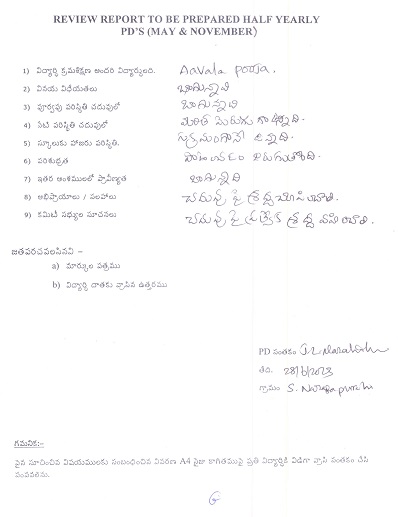 REVIEW REPORT TO BE PREPARED HALF YEARLY
PD'S (MAY & NOVEMBER)
1) విద్యార్థి క్రమశిక్షణ అందరి విద్యార్థులది. Aavala pooja.
2) వినయ విధేయతలు బాగున్నవి
3) పూర్వపు పరిస్థితి చదువులో బాగున్నది
4) నేటి పరిస్థితి చదువులో
5) స్కూలుకు హాజరు పరిస్థితి. సక్రమంగానే ఉన్నది.
6) పరిశుభ్రత పాటించడం జరుగుతోంది.
7) ఇతర అంశములలో ప్రావీణ్యత బాగున్నది
8) అభిప్రాయాలు / సలహాలు చదువు పై శ్రద్ధ
9) కమిటీ సభ్యుల సూచనలు చదువు పై ప్రత్యేక శ్రద్ధ
జతపరచవలసినవి –
a) మార్కుల పత్రము
b) విద్యార్థి దాతకు వ్రాసిన ఉత్తరము
PD సంతకం
తేది. 28/6/2023
గ్రామం S. Narsapuram
గమనిక:-
పైన సూచించిన విషయములకు సంబంధించిన వివరణ A4 సైజు కాగితముపై ప్రతి విద్యార్థికి విడిగా వ్రాసి సంతకం చేసి
పంపవలెను.